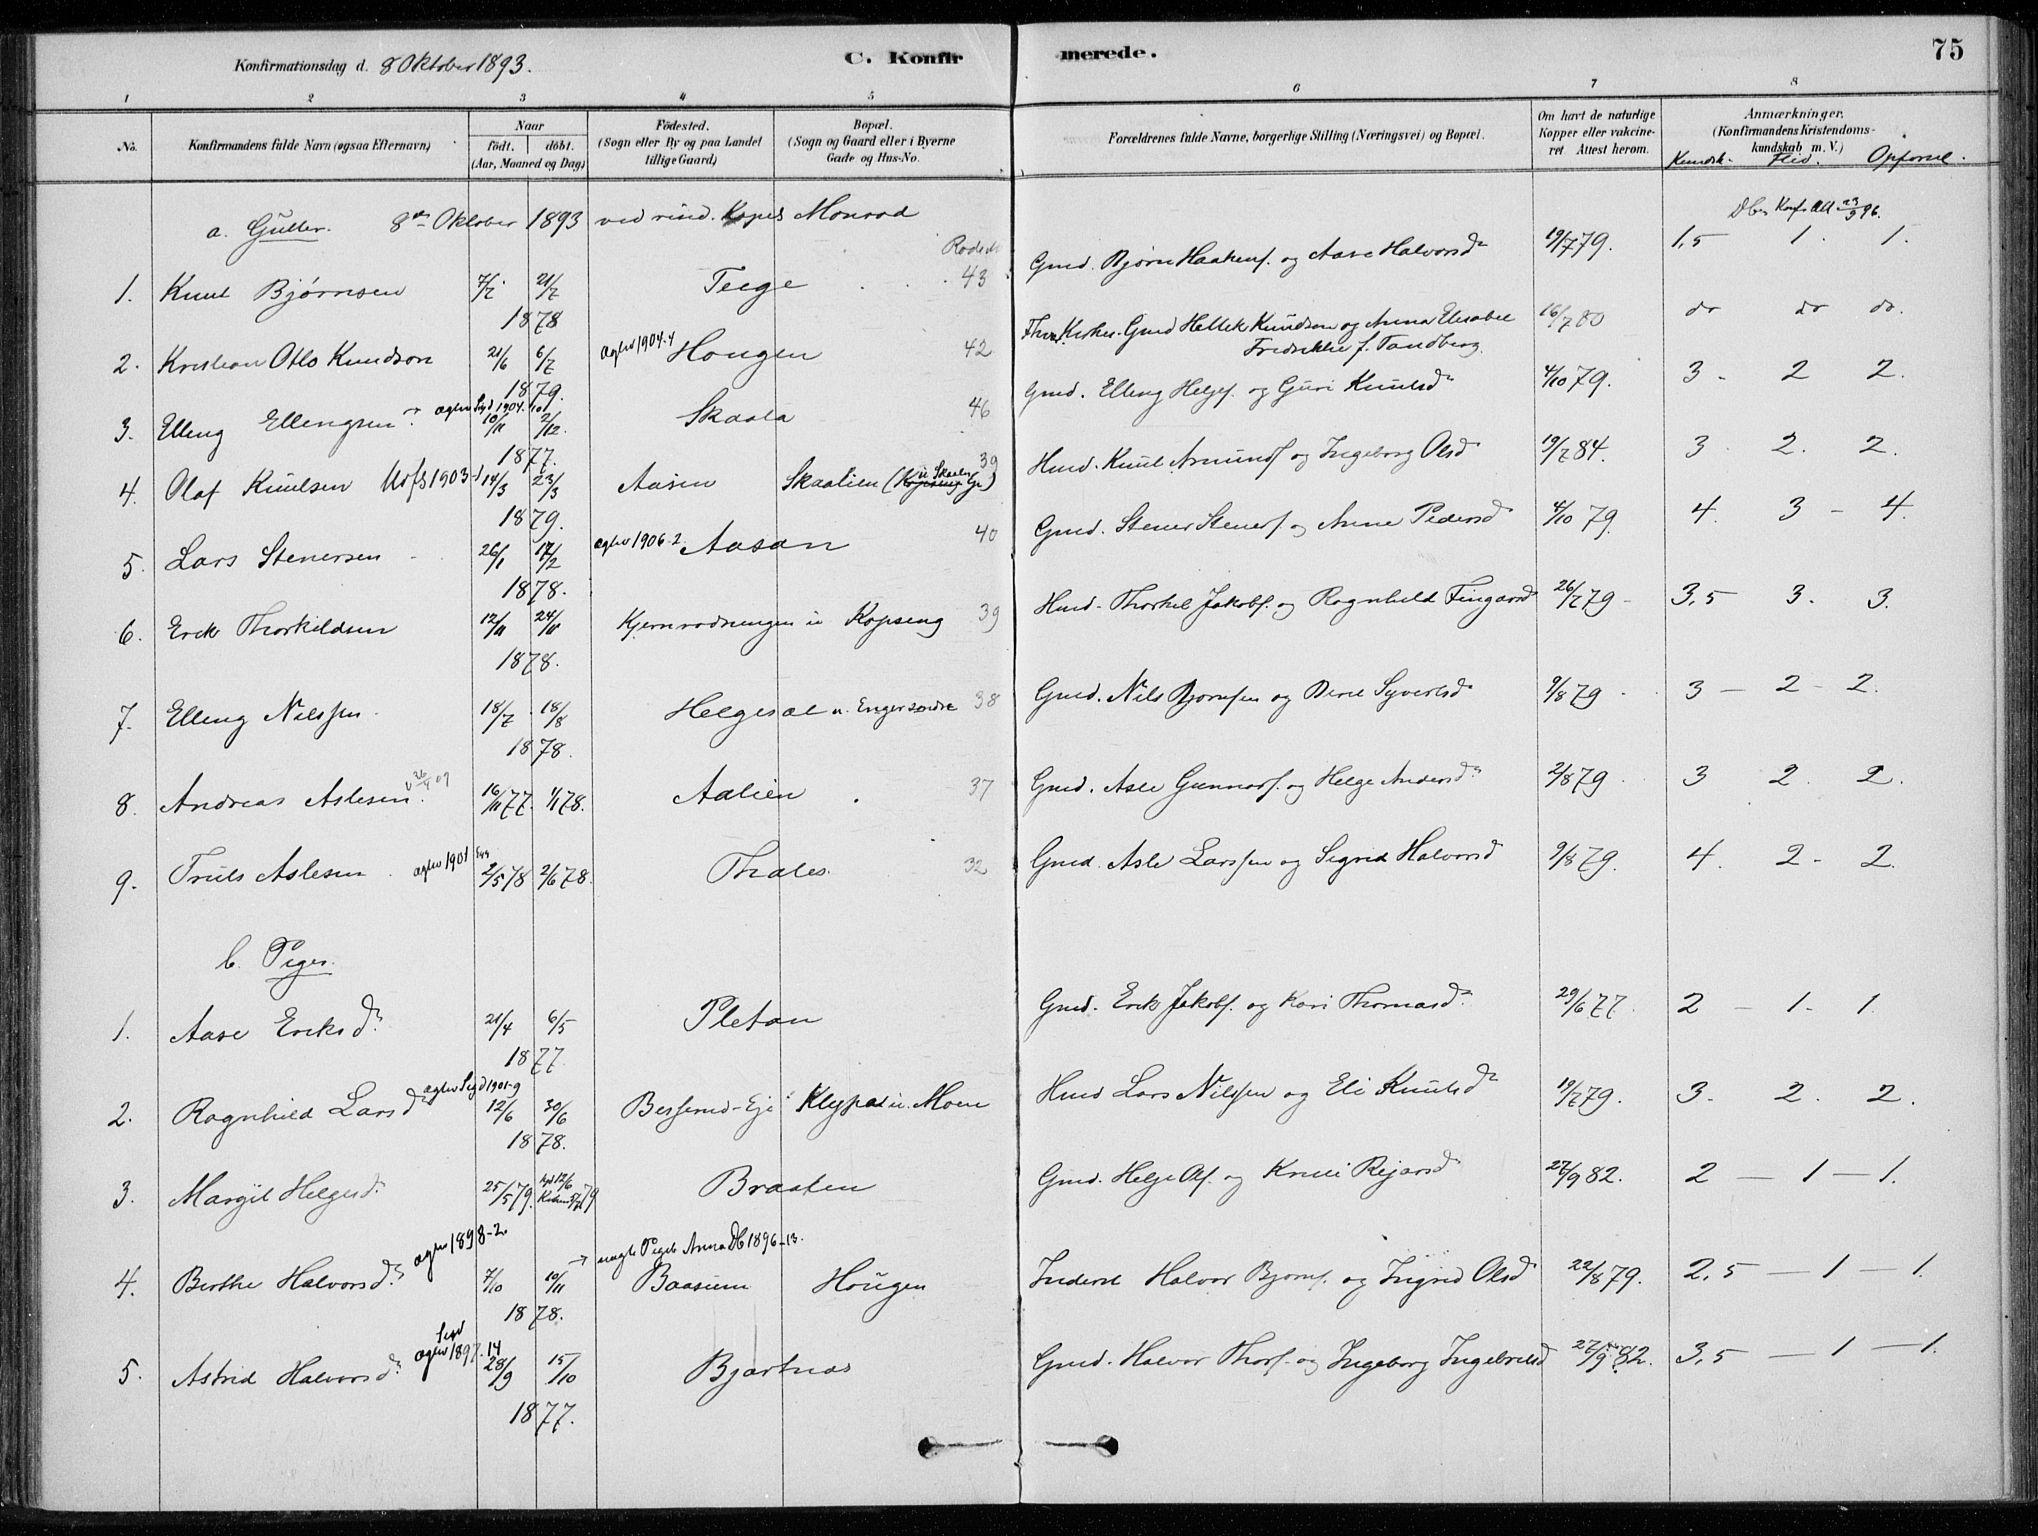 Konfirmationsdag d. 8 Oktober 1893.
C. Konfirmerede.
75
1 2 3 4 5 6 7 8
No.
Konfirmandens fulde Navn (ogsaa Efternavn)
Naar
födt. döbt.
(Aar, Maaned og Dag)
Födested.
(Sogn eller By og paa Landet
tillige Gaard)
Bopæl.
(Sogn og Gaard eller i Byerne
Gade og Hus-No.
Forældrenes fulde Navne, borgerlige Stilling (Næringsvei) og Bopæl.
Om havt de naturlige
Kopper eller vakcine-
ret. Attest herom.
Anmærkninger.
(Konfirmandens Kristendoms-
kundskab m. V.)
Kundsk. Flid. Opførsel.
a. Gutter. 8de Oktober 1893 ved resid. Kapel. Monrad
1. Knut Bjørnsen 7/7 21/7 1878 Teege 43 Gmd. Bjørn Haakens. og Aase Halvorsd 19/7 79. 1,5 1. 1.
2. Kristian Otto Knudson 21/6 6/7 1879. Hougen 42 Kirkes. Gmd Hellek Knudson og Anna Elisabet 16/7 80 do do do.
Fredrikke f. Tandberg.
3. Elling Ellingsen 10/11 2/12. 1877. Skaala 46 Gmd. Elling Helges. og Guri Knutsd 4/10 79. 3 - 2 2.
4. Olaf Knutsen 14/3 23/3 1879. Aasen Skaalien 39 Hmd. Knut Amunds og Ingeborg Olsd 19/7 84. 3 2. 2.
5. Lars Stenersen 26/1 17/2 1878. ægtev 1906-2 Aasan 40 Gmd. Stener Steners. og Anne Pedersd 4/10 79. 4. 3 - 4.
6. Erik Thorkildsen 12/11 24/11 1878. Kjernrodningen u. Kopseng 39 Hmd. Thorkel Jakobs. og Ragnhild Fingarsd 26/7 79 3,5 3. 3.
7. Elling Nilssen 18/7 18/8 1878. Helgesæt u. Enger søndre 38 Gmd. Nils Bjørnsen og Berit Syvertsd 9/8 79 3 - 2 - 2.
8. Andreas Aslesen 16/11 77. 1/1 78. Aalien 37 Gmd. Asle Gunnars. og Helge Andersd 2/8 79 3 2. 2.
9. Truls Aslesen ægtev 1901 2/5 78 2/6 78. Tholes 32 Gmd. Asle Larssen og Sigrid Halvorsd 9/8 79. 4. 2 - 2.
b. Piger.
1. Aase Eriksd. 21/4 6/5 1877. Pletan Gmd. Erik Jakobs. og Kari Thomasd. 29/6 77. 2 - 1. 1.
2. Ragnhild Larsd ægtev Sigd 1901-9 12/6 30/6 1878. Besserud-Eje Klypa u. Moen Hmd Lars Nilssen og Eli Knutsd 19/7 79. 3. 2. 2.
3. Margit Helgesd. 25/5 79. Braaten Gmd. Helge Ols. og Rejarsd 27/9 82. 2 - 1 - 1.
4. Berthe Halvorsd. ægtev 1898-2 7/10 10/11 1878. → uægte Pigeb. Anna Db 1896-13. Baasum Hougen Inderst Halvor Bjørns. og Ingrid Olsd 22/8 79. 2,5 - 1 - 1.
5. Astrid Halvorsd. Sigd ægtev 1897.14 28/9 15/10 1877. Bjørtnæs Gmd. Halvor Thors. og Ingeborg Ingebretsd 27/9 82. 3,5 - 1 - 1.